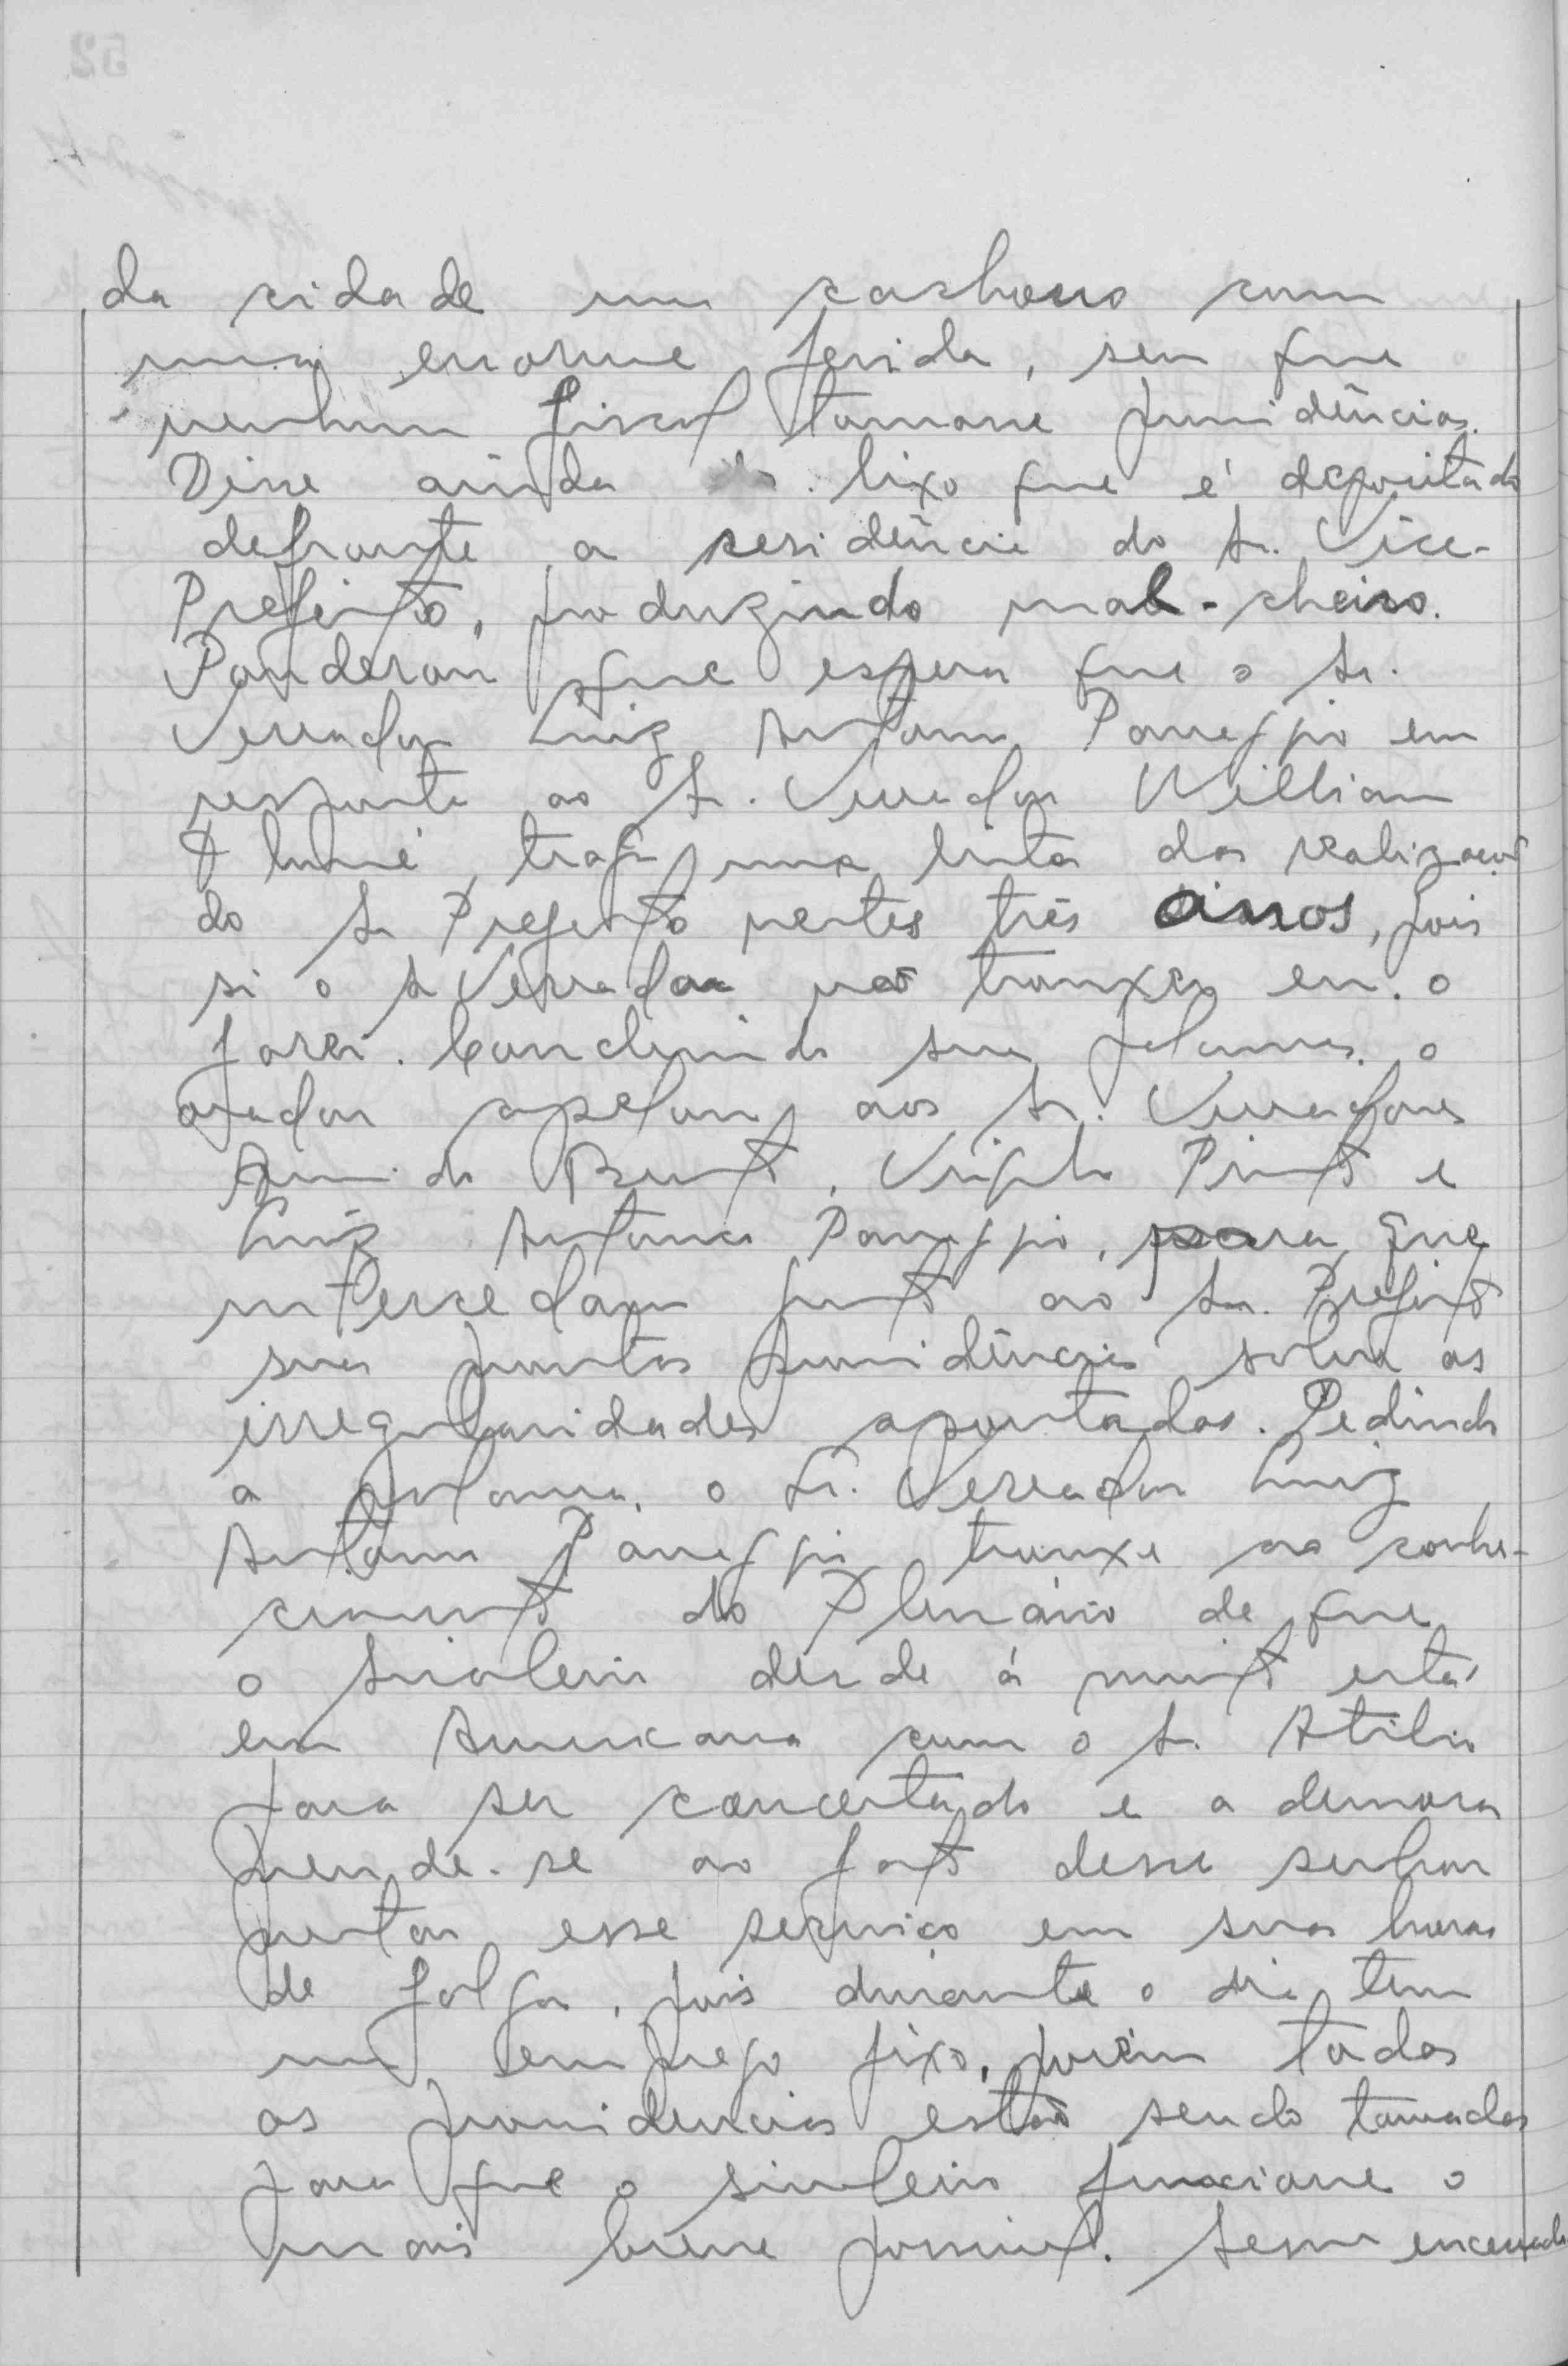 da cidade um cachorro com
uma enorme ferida, sem que
nenhum fiscal tomasse providências.
Disse ainda do lixo que é depositado
defronte a residência do Sr. Vice-
Prefeito, produzindo mal-cheiro.
Ponderou que espera que o Sr.
Vereador Luiz Antonio Panaggio em
resposta ao Sr. Vereador William
traga uma lista das realizações
do Sr Prefeito nestes três anos, pois
si o Sr Vereador não trouxer eu o
farei. Concluindo sua palavra o
orador apelou aos Sr. Vereadores
Bento, Virgilio Pinto e
Luiz Antonio Panaggio, para que
intercedam junto ao Sr. Prefeito
suas prontas providências sobre as
irregularidades apontadas. Pedindo
a palavra, o Sr. Vereador Luiz
Antonio Panaggio trouxe ao conhe-
cimento do Plenário de que
o sinaleiro desde á muito está
em Americana com o Sr. Atilio
para ser concertado e a demora
prende-se ao fato desse senhor
prestar esse serviço em suas horas
de folga, pois durante o dia tem
um emprego fixo, porém todas
as providencias estão sendo tomadas
para que o sinaleiro funcione o
mais breve possivel. Sem encerrado